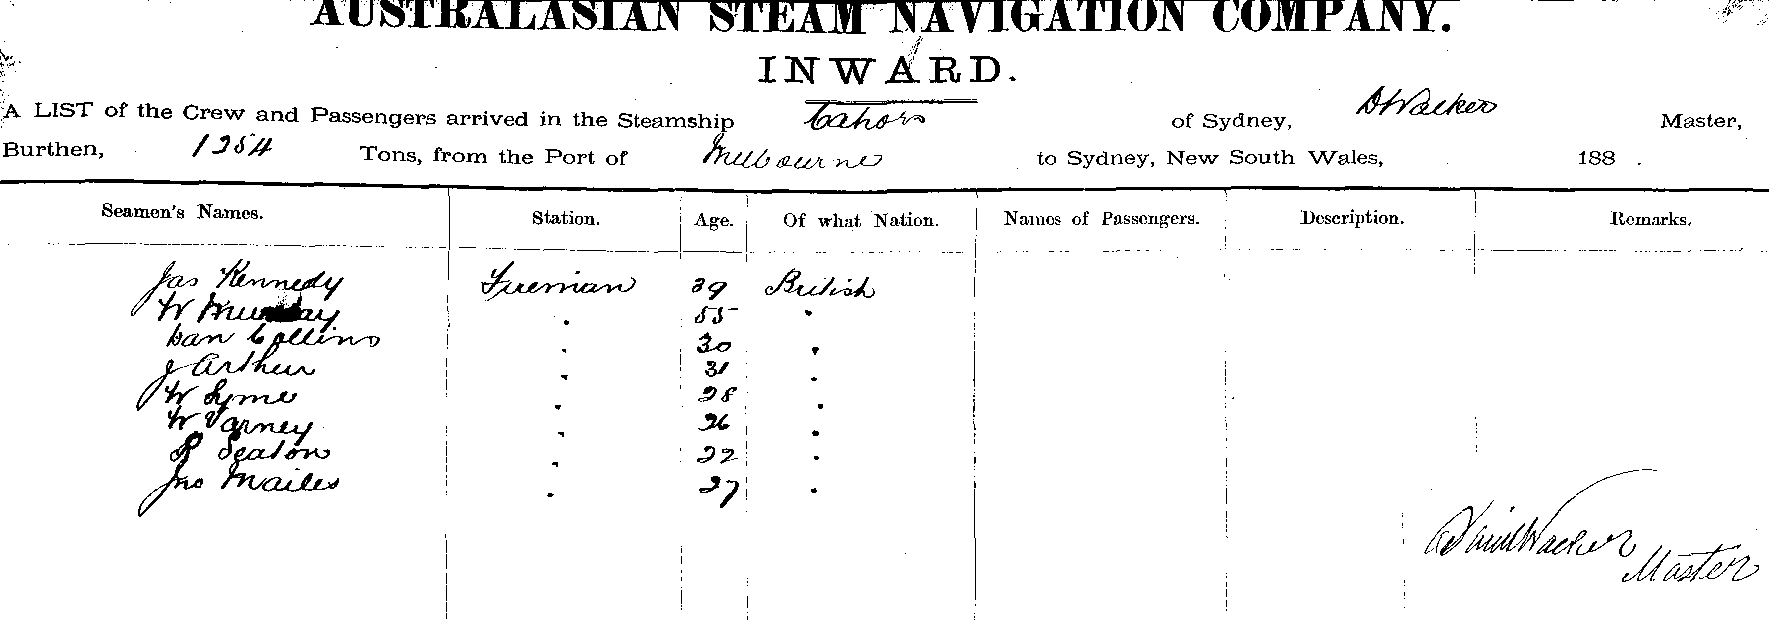 AUSTRALASIAN STEAM NAVIGATION COMPANY.
INWARD.
A LIST of the Crew and Passengers arrived in the Steamship Cahors of Sydney, D Walker Master,
Burthen, 1254 Tons, from the Port of Melbourne to Sydney, New South Wales, 188 .
Seamen's Names. Station. Age. Of what Nation. Names of Passengers. Description. Remarks.
Jas Kennedy Fireman 39 British
W Murray " 55 "
Dan Collins " 30 "
J Arthur " 31 "
W Syme " 28 "
W Varney " 26 "
R Seaton " 22 "
Jno Mailes " 27 "
David Walker
Master